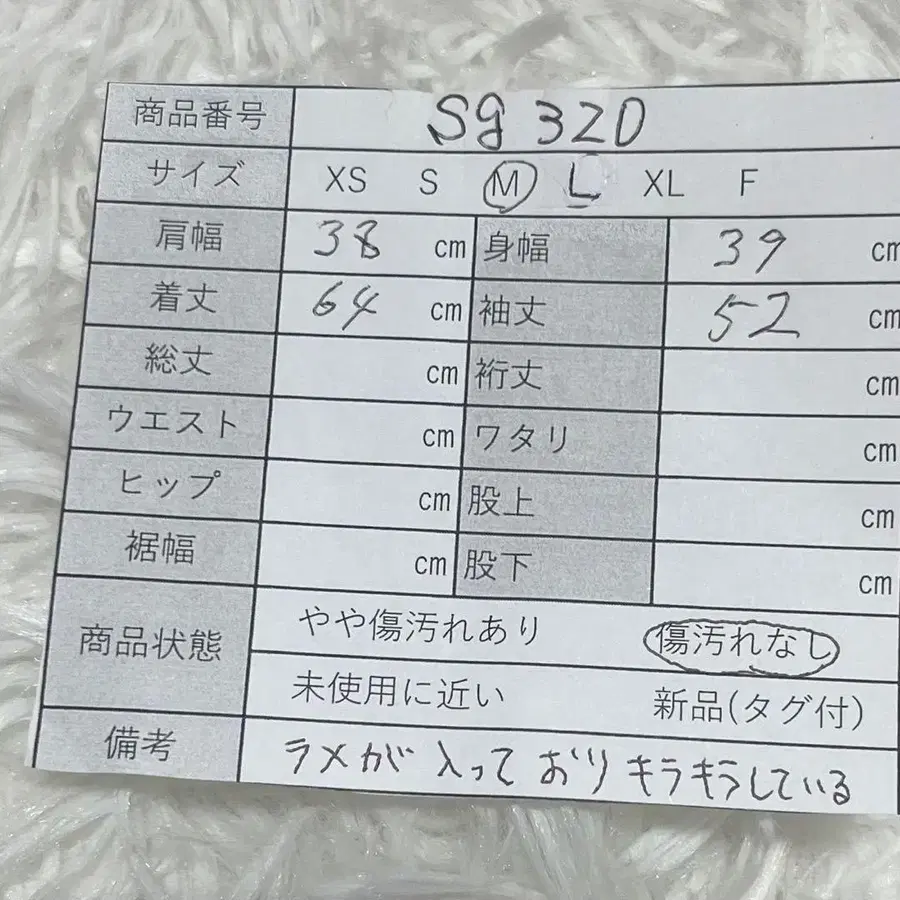 商品番号 Sg 320
サイズ XS S M L XL F
肩幅 38 cm 身幅 39 cm
着丈 64 cm 袖丈 52 cm
総丈 cm 裄丈 cm
ウエスト cm ワタリ cm
ヒップ cm 股上 cm
裾幅 cm 股下 cm
商品状態 やや傷汚れあり 傷汚れなし
未使用に近い 新品(タグ付)
備考 ラメが入っており キラキラしている